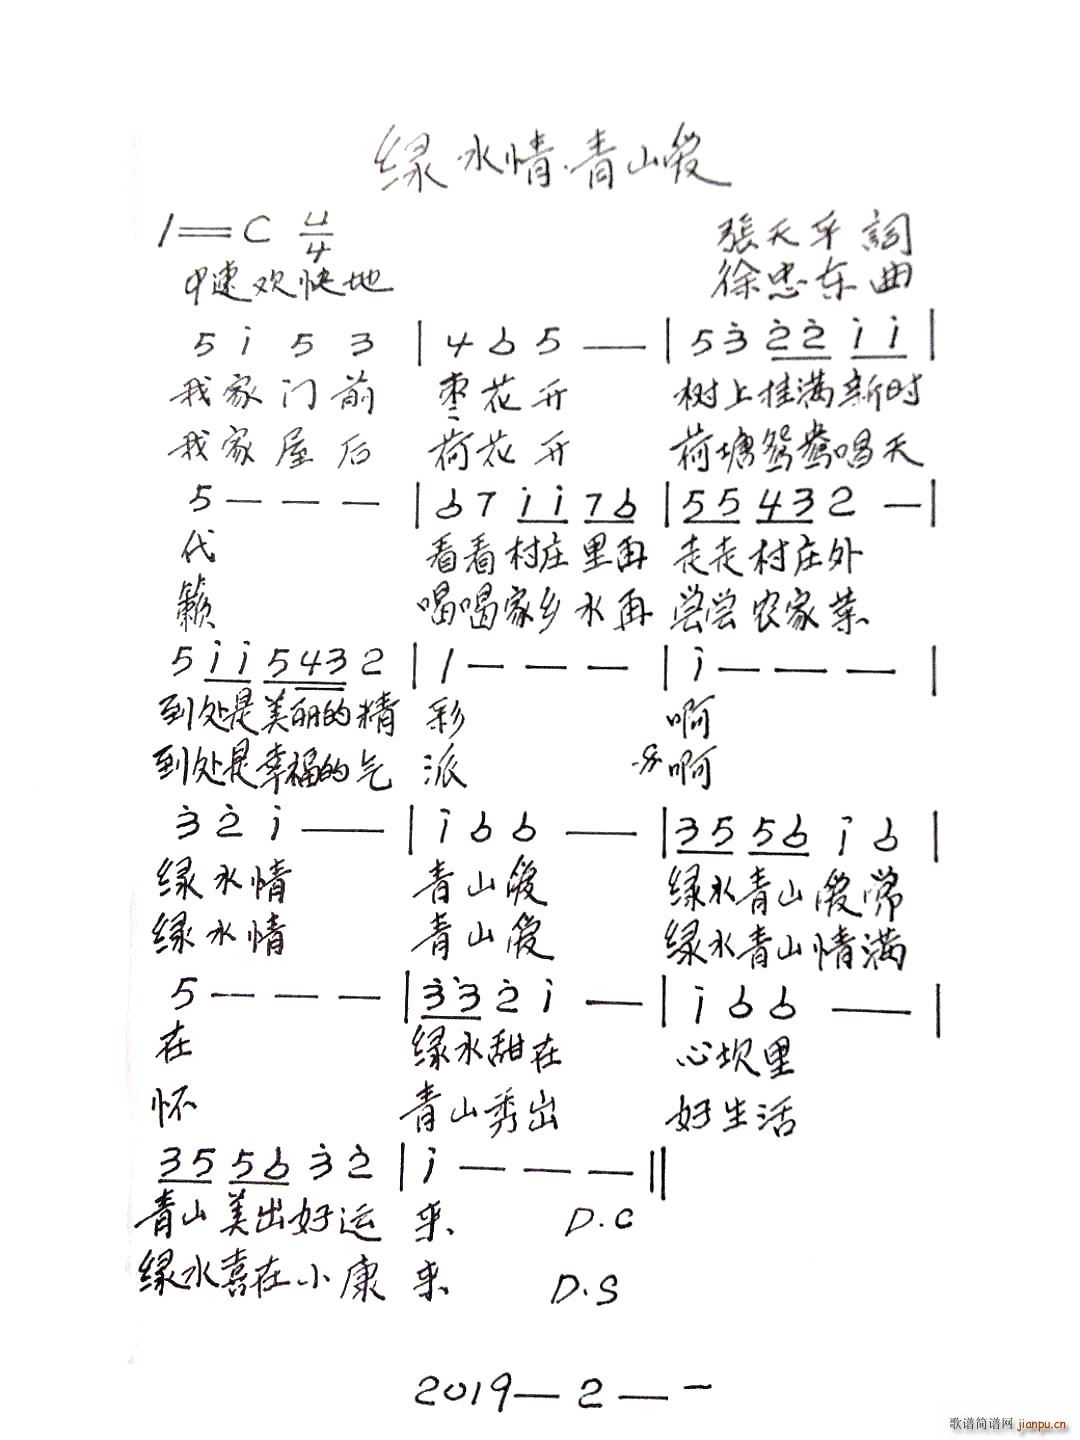 绿水情·青山爱
1=C 4/4
張天平 詞
中速欢快地
徐忠东 曲
5 i 5 3 | 4 6 5 — | 5 3 2 2 i i |
我家门前 枣花开 树上挂满新时
我家屋后 荷花开 荷塘鸳鸯唱天
5 — — — | 6 7 i i 7 6 | 5 5 4 3 2 — |
代 看看村庄里再 走走村庄外
籁 喝喝家乡水再 尝尝农家菜
5 i i 5 4 3 2 | 1 — — — | i — — — |
到处是美丽的精 彩 啊
到处是幸福的气 派 𝄋啊
3 2 i — | i 6 6 — | 3 5 5 6 i 6 |
绿水情 青山爱 绿水青山爱常
绿水情 青山爱 绿水青山情满
5 — — — | 3 3 2 i — | i 6 6 — |
在 绿水甜在 心坎里
怀 青山秀出 好生活
3 5 5 6 3 2 | i — — — ‖
青山美出好运 来 D.C
绿水喜在小康 来 D.S
2019—2—-
歌谱简谱网 jianpu.cn